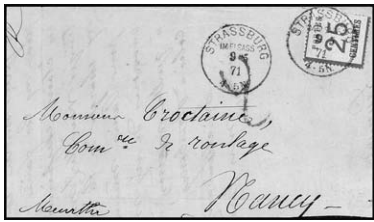 STRASSBURG
IM ELSASS
9
71
4-5N.
STRASSBURG
9
71
4-5N.
25
CENTIMES
Monsieur Croctaine
Com re de roulage
Nancy
Meurthe